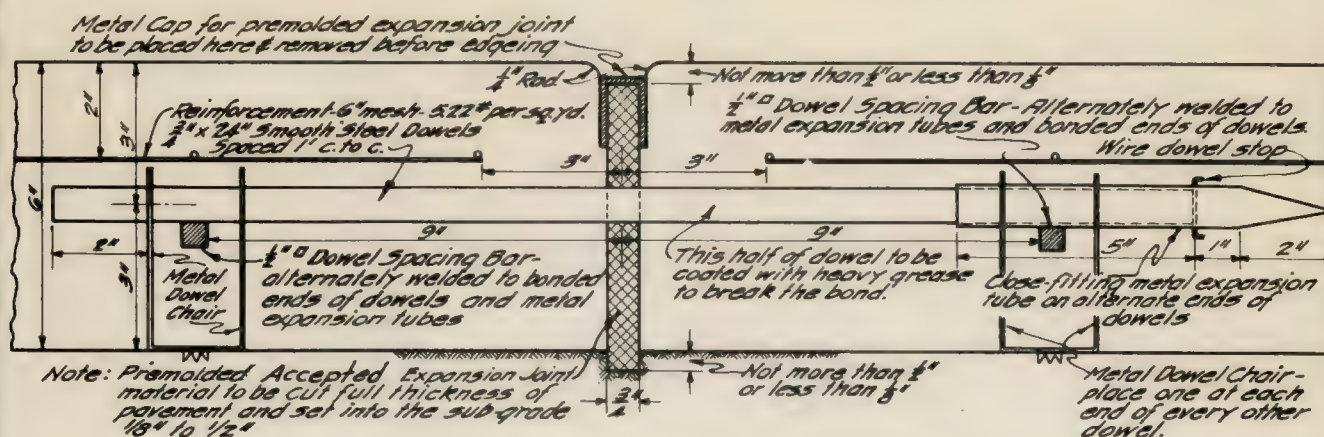 Metal Cap for premolded expansion joint
to be placed here & removed before edgeing
1/4" Rad.
Not more than 1/2" or less than 1/8"
2"
3"
6"
3"
Reinforcement-6" mesh-5.22# per sq. yd.
3/4" x 24" Smooth Steel Dowels
Spaced 1' c. to c.
1/2"□ Dowel Spacing Bar-Alternately welded to
metal expansion tubes and bonded ends of dowels.
Wire dowel stop
3"
3"
2"
9"
9"
5"
1"
2"
Metal
Dowel
Chair
1/2"□ Dowel Spacing Bar-
alternately welded to bonded
ends of dowels and metal
expansion tubes
This half of dowel to be
coated with heavy grease
to break the bond.
Close-fitting metal expansion
tube on alternate ends of
dowels
Note: Premolded Accepted Expansion Joint
material to be cut full thickness of
pavement and set into the sub-grade
1/8" to 1/2"
3/4"
Not more than 1/2"
or less than 1/8"
Metal Dowel Chair-
place one at each
end of every other
dowel.